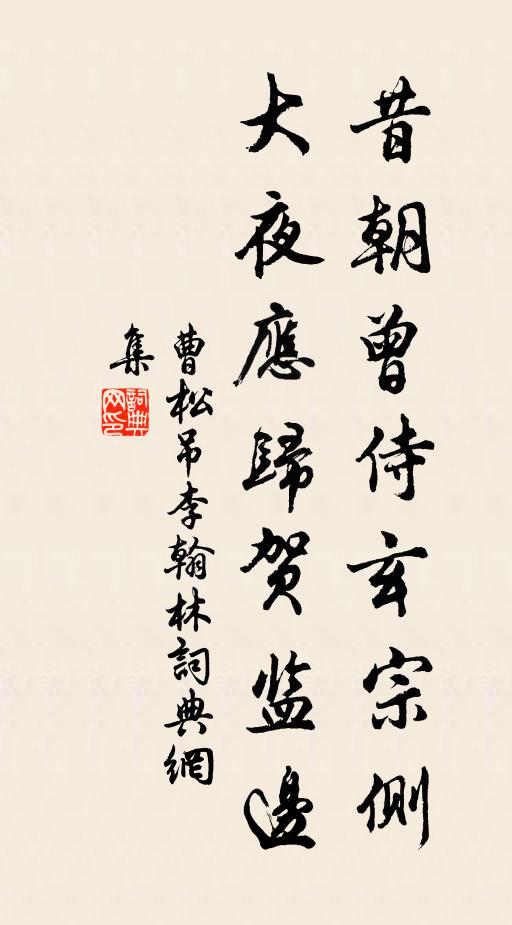 昔朝曾侍玄宗側
大夜應歸賀监邊
曹松吊李翰林詞典網
集
詞典
网印